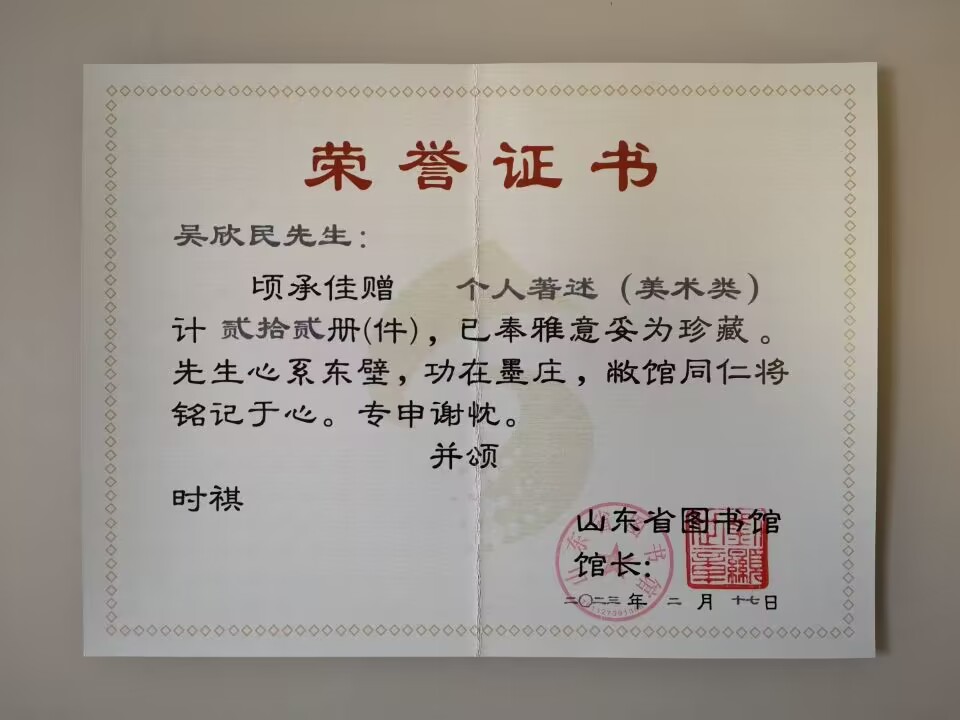 荣誉证书
吴欣民先生：
顷承佳赠 个人著述（美术类）
计 贰拾贰册(件)，已奉雅意妥为珍藏。
先生心系东壁，功在墨庄，敝馆同仁将
铭记于心。专申谢忱。
并颂
时祺
山东省图书馆
馆长：
二〇二三年 二 月 十七日
山东省图书馆